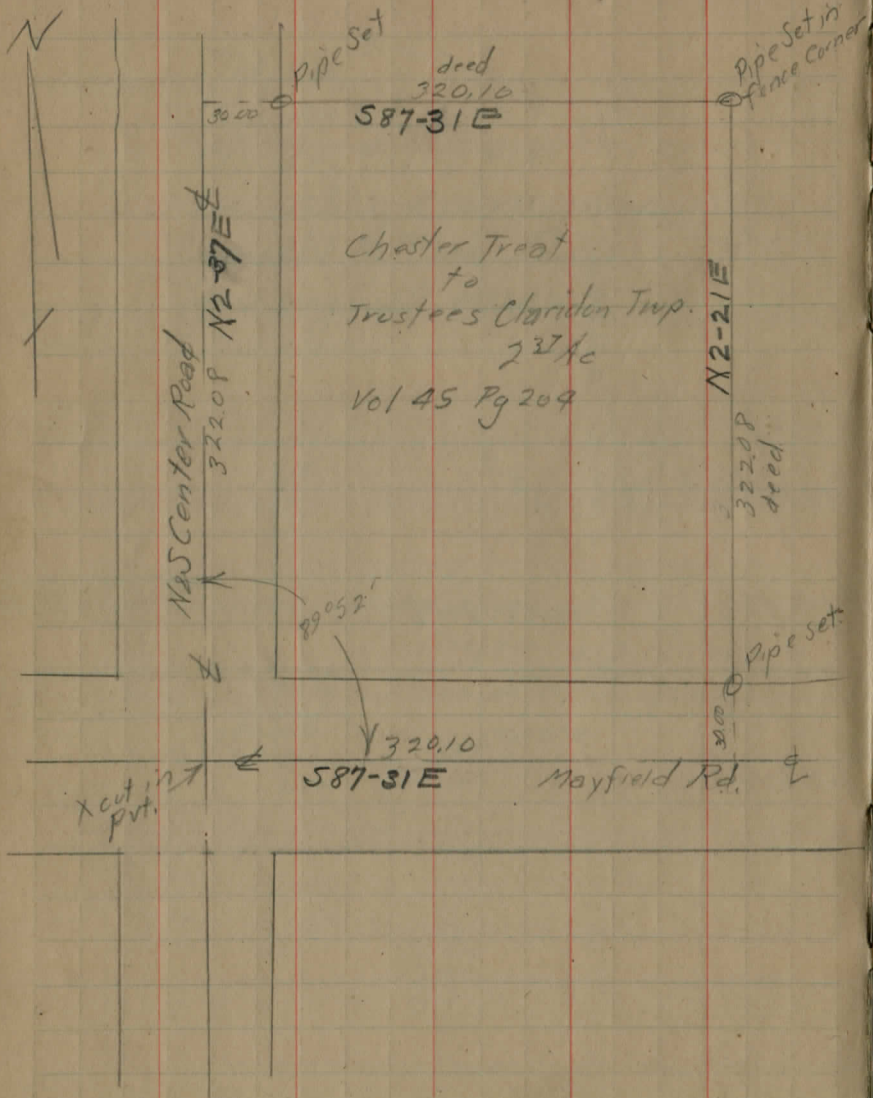 N
Pipe Set
deed
320.10
S87-31E
Pipe Set in
fence Corner
30.00
℄
N2-37E
322.08
N&S Center Road
Chester Treat
to
Trustees Claridon Twp.
2 37 Ac
Vol 45 Pg 204
N2-21E
322.08
deed
89°52'
℄
Pipe set.
30.00
℄
320.10
S87-31E
Mayfield Rd.
℄
X cut in
pvt.